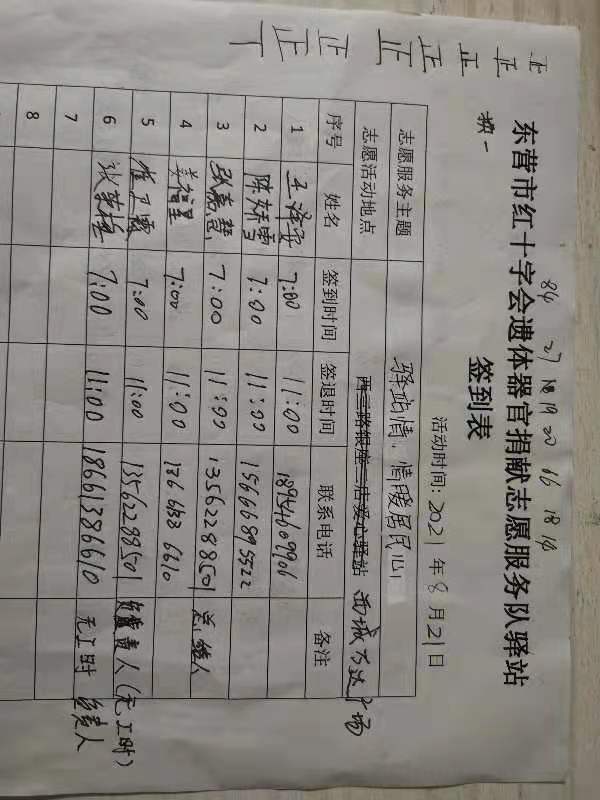 正 正 正 正 正 正 正
换一
84 27 18 19 20 16 18 14
东营市红十字会遗体器官捐献志愿服务队驿站
签到表
活动时间: 2021年8月21日
志愿服务主题 驿站情·情暖居民心
志愿活动地点 西二路银座一店爱心驿站 西城万达广场
序号 姓名 签到时间 签退时间 联系电话 备注
1 7:00 11:00 18954609906
2 陈娇雪 7:00 11:00 15666895522
3 张嘉慧 7:00 11:00 13562288501 总结人
4 姜福星 7:00 11:00 186 683 6610
5 崔卫霞 7:00 11:00 13562288501 负责人(无工时)
6 7:00 11:00 18661386610 无工时 负责人
7
8